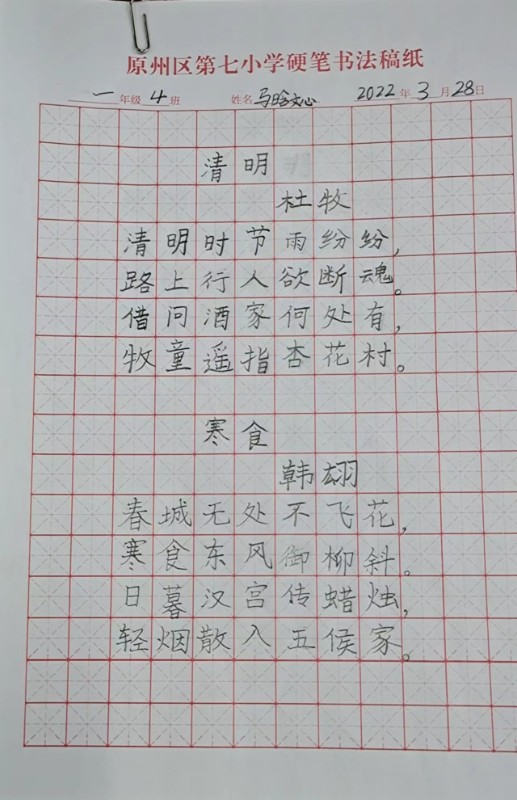 原州区第七小学硬笔书法稿纸
一年级4班 姓名马晗文心 2022年3月28日
清明
杜牧
清明时节雨纷纷,
路上行人欲断魂。
借问酒家何处有,
牧童遥指杏花村。
寒食
韩翃
春城无处不飞花,
寒食东风御柳斜。
日暮汉宫传蜡烛,
轻烟散入五侯家。